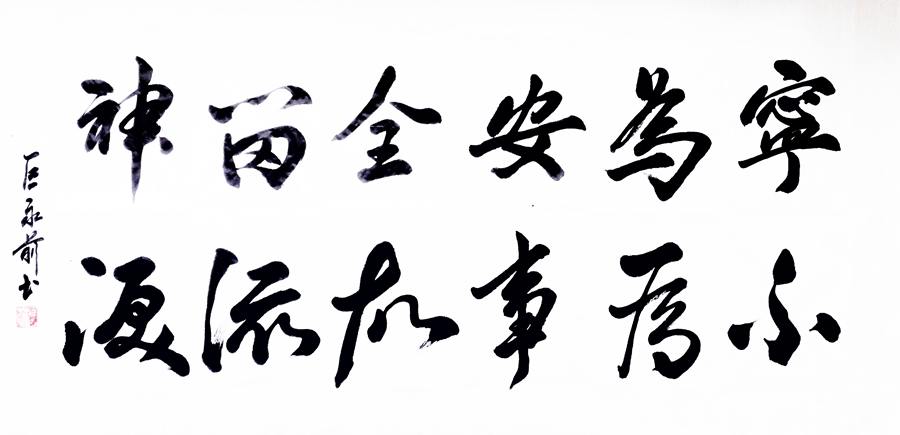 寧為安全留神
不為事故流淚
巨永前书